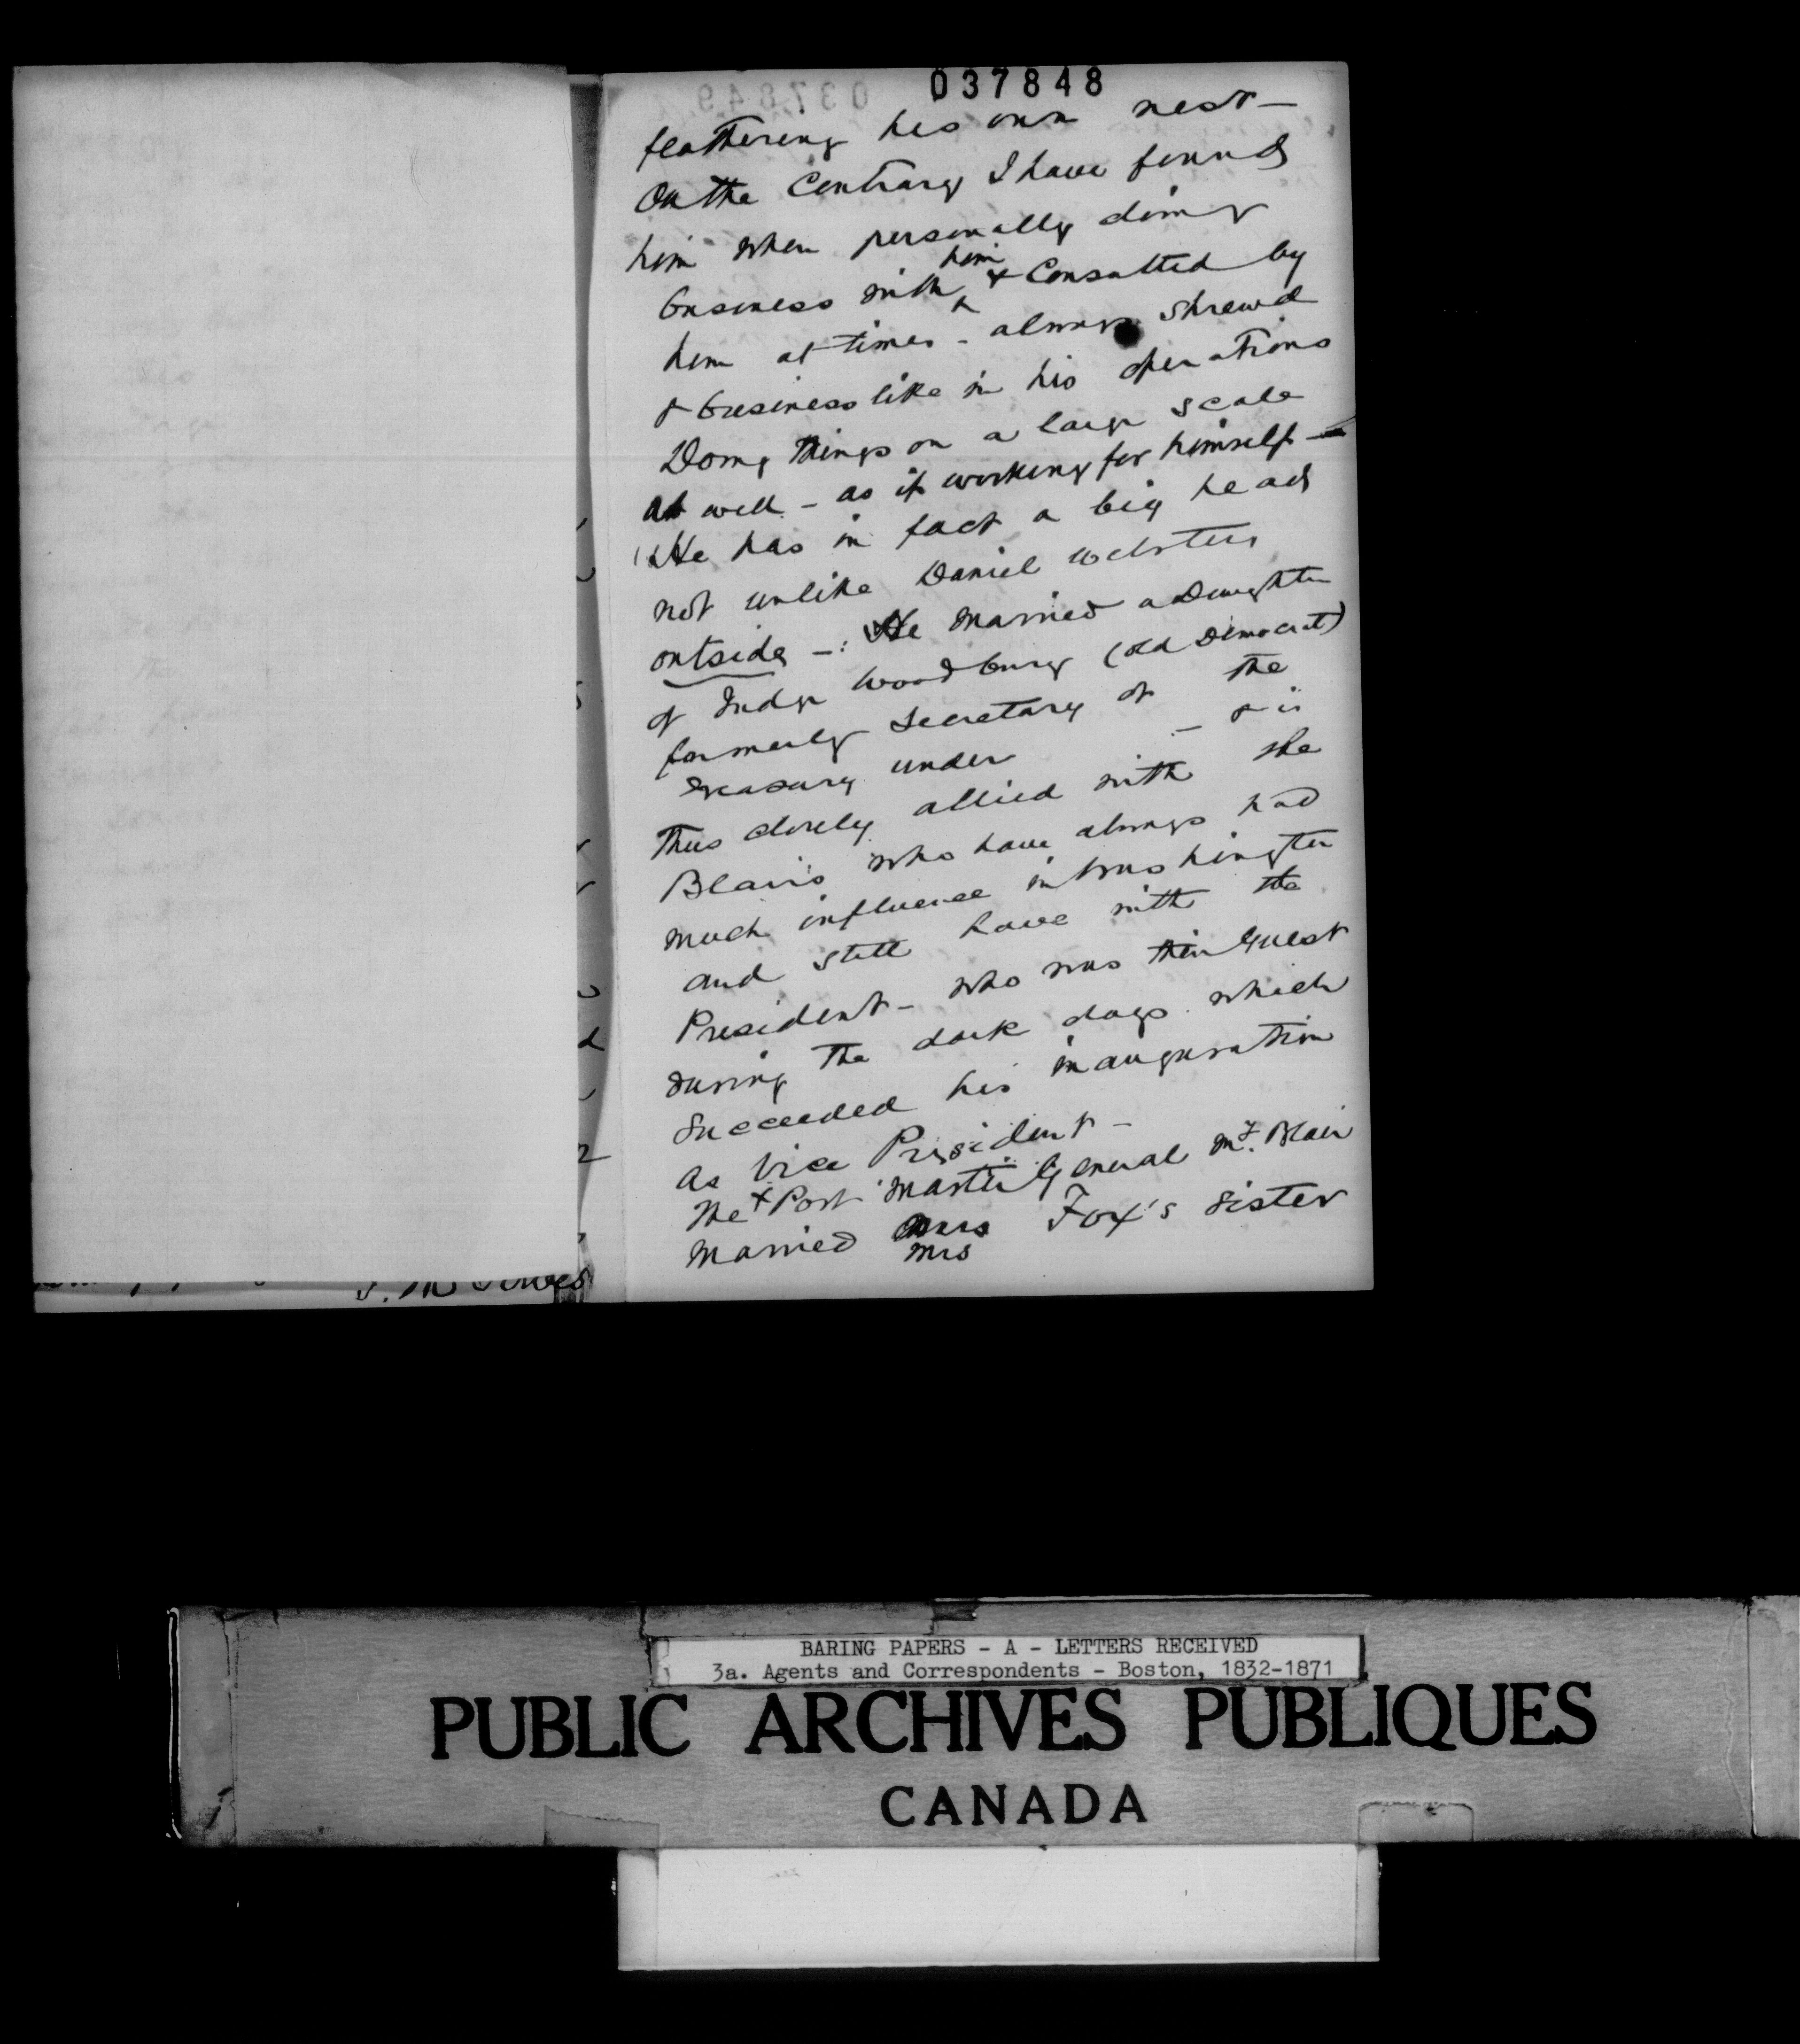 037848
feathering his own nest –
On the Contrary I have found
him when personally doing
business with him & Consulted by
him at times – always shrewd
& business like in his operations
Doing things on a large scale
as well – as if working for himself –
He has in fact a big head
not unlike Daniel Websters
outside – : He married a Daughter
of Judge Woodbury (old Democrat)
formerly Secretary of the
Treasury under – & is
thus closely allied with the
Blairs who have always had
much influence in Washington
and still have with the
President – who was their Guest
during the dark days which
succeeded his inauguration
as Vice President –
The + Post Master General Mr. Blair
married Mrs Fox's sister
Mrs
BARING PAPERS - A - LETTERS RECEIVED
3a. Agents and Correspondents - Boston, 1832-1871
PUBLIC ARCHIVES PUBLIQUES
CANADA